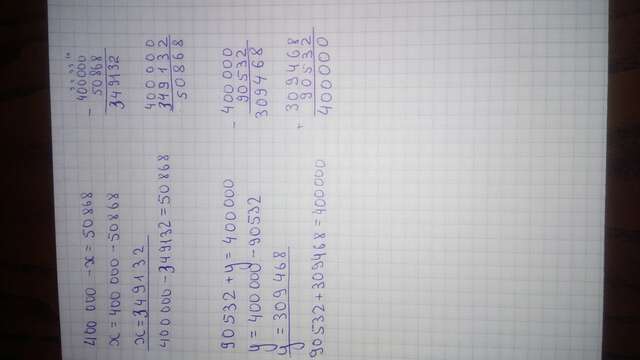 400 000 - x = 50 868
x = 400 000 - 50 868
x = 349132
400 000 - 349132 = 50 868
90532 + y = 400000
y = 400000 - 90532
y = 309468
90532 + 309468 = 400000
- 400000
50868
349132
400000
349132
50868
- 400000
90532
309468
+ 309468
90532
400000